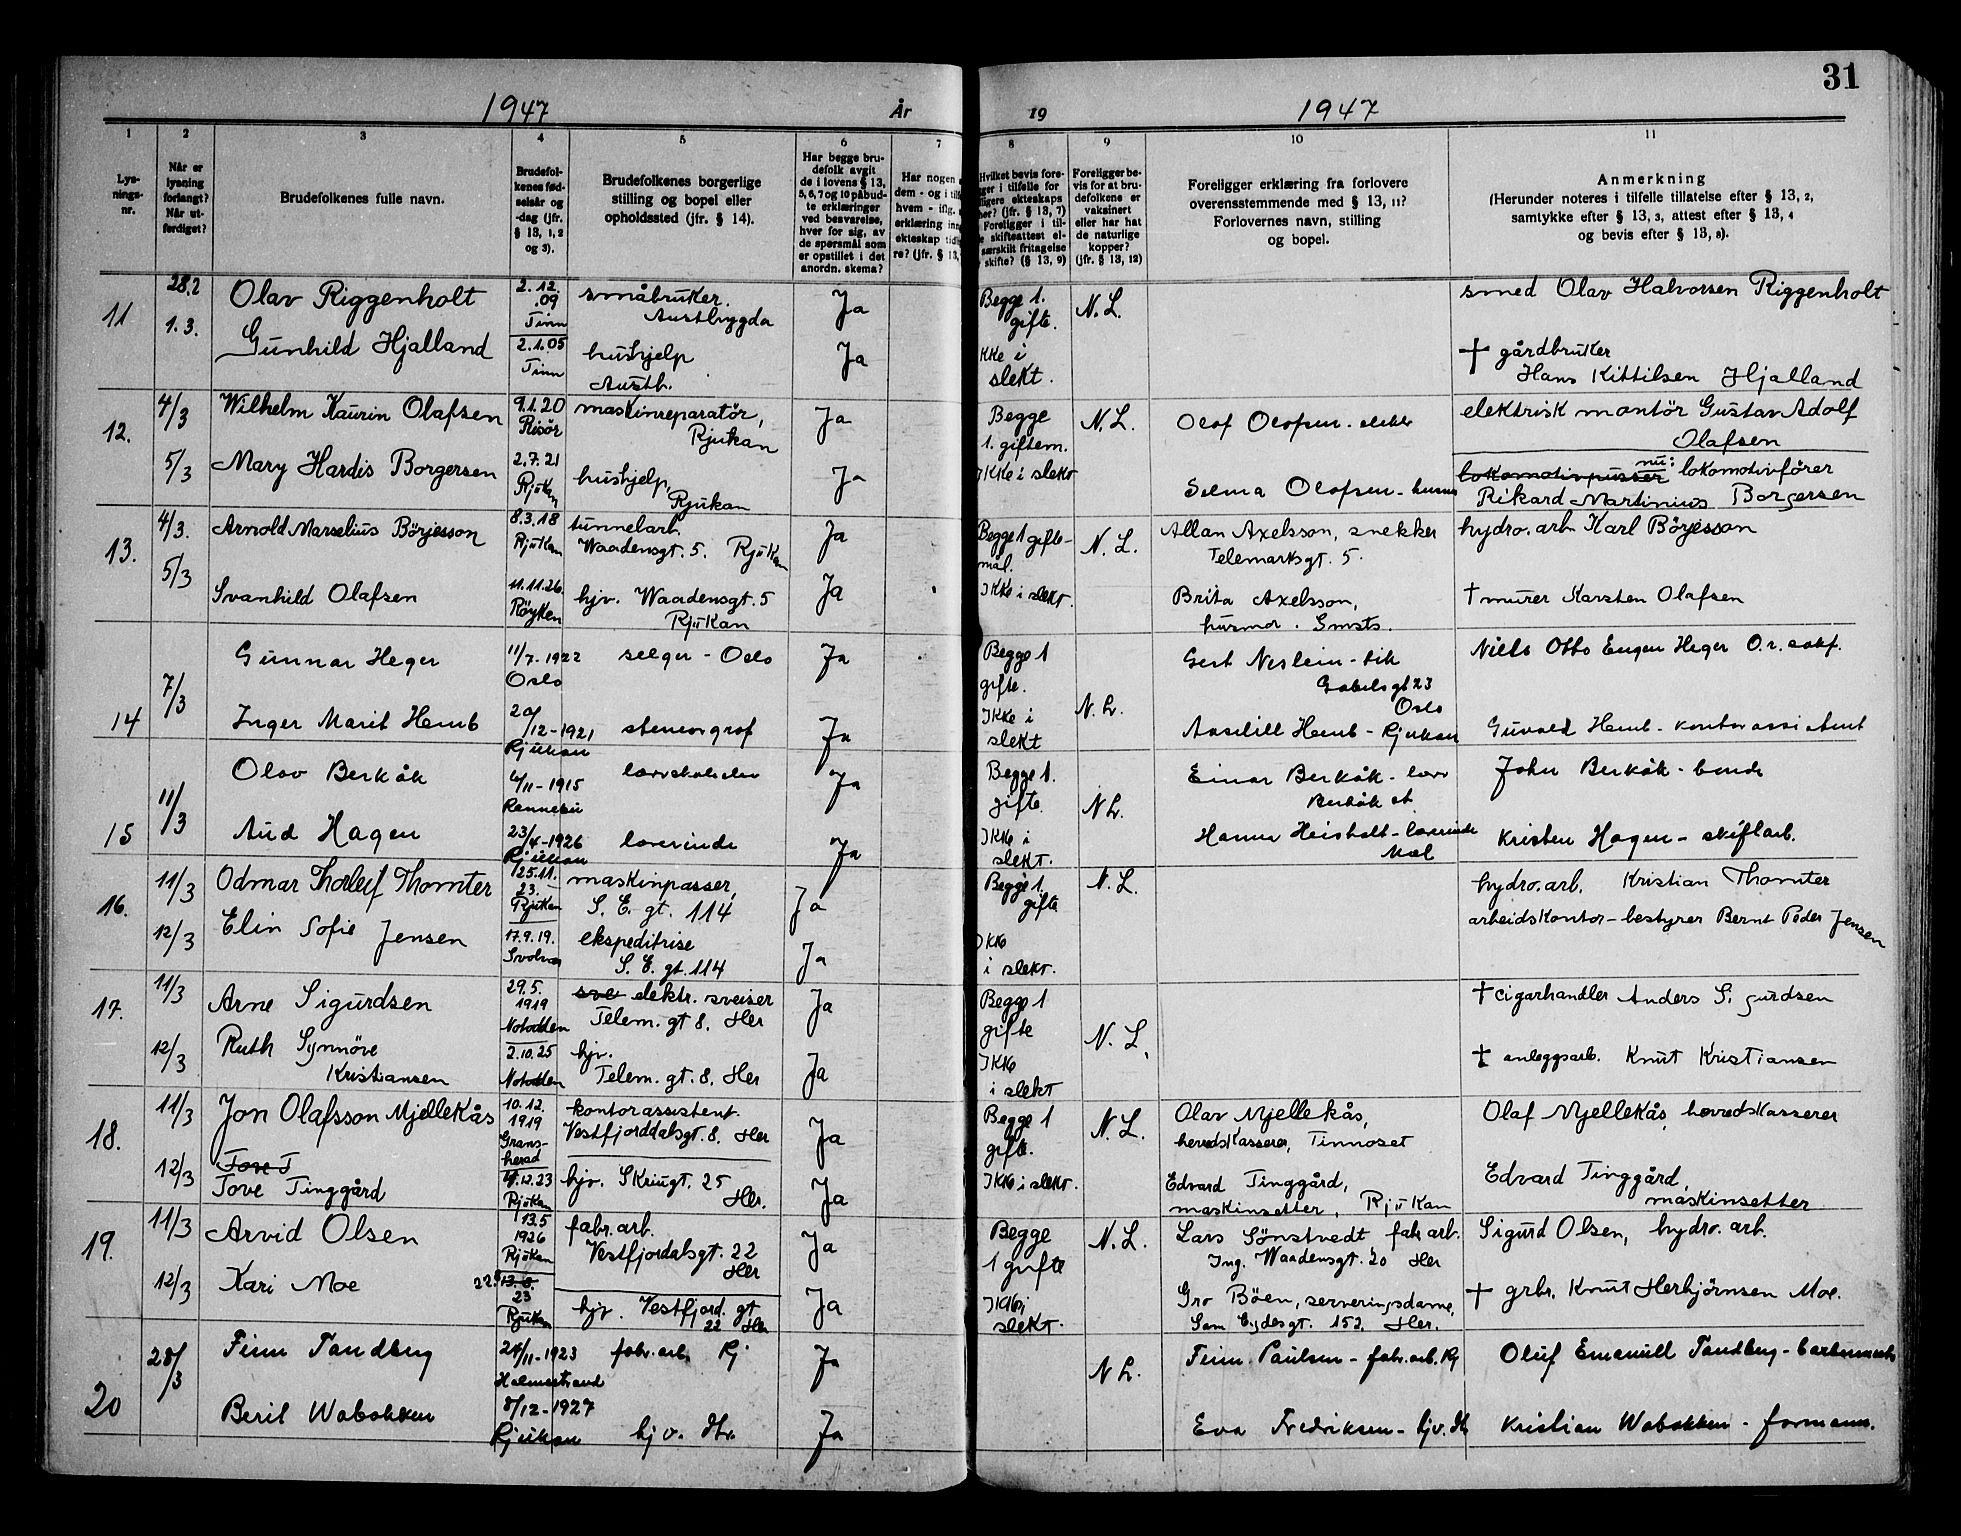 31
1947 År
19 1947
1 2 3 4 5 6 7 8 9 10 11
Lys-
nings-
nr.
Når er
lysning
forlangt?
Når ut-
ferdiget?
Brudefolkenes fulle navn.
Brudefol-
kenes fød-
selsår og
-dag (jfr.
§ 13, 1, 2
og 3).
Brudefolkenes borgerlige
stilling og bopel eller
opholdssted (jfr. § 14).
Har begge bru-
defolk avgit
de i lovens § 13,
5, 6, 7 og 10 påbud-
te erklæringer
ved besvarelse,
hver for sig, av
de spørsmål som
er opstillet i det
anordn. skema?
Har nogen
dem - og i tilf
hvem - iflg.
erklæring inn
ekteskap tidl
re? (jfr. § 13,
Hvilket bevis fore-
ger i tilfelle for
ligere ekteskaps
her? (jfr. § 13, 7)
Foreligger i til-
e skifteattest el-
særskilt fritagelse
skifte? (§ 13, 9)
Foreligger be-
vis for at bru-
defolkene er
vaksinert
eller har hat
de naturlige
kopper?
(jfr. § 13, 12)
Foreligger erklæring fra forlovere
overensstemmende med § 13, 11?
Forlovernes navn, stilling
og bopel.
Anmerkning
(Herunder noteres i tilfelle tillatelse efter § 13, 2,
samtykke efter § 13, 3, attest efter § 13, 4
og bevis efter § 13, 8).
11
28.2
1.3.
Olav Riggenholt
2.12.
09
Tinn
småbruker.
Austbygda
Ja
Gunhild Hjalland
2.1.05
Tinn
hushjelp
Austb.
Ja
Begge 1.
gifte.
kke i
slekt.
N.L.
smed Olav Halvorsen Riggenholt
† gårdbruker
Hans Kittilsen Hjalland
12.
4/3
5/3
Wilhelm Kaurin Olafsen
9.1.20
Risör
maskinreparatör,
Rjukan
Ja
Mary Hardis Borgersen
2.7.21
Rjukan
hushjelp,
Rjukan
Ja
Begge
1. giftem.
Ikke i slekt
N.L.
Olof Olofsen - elektr
Selma Olofsen - husm
elektrisk montör Gustav Adolf
Olafsen
nu:
lokomotivpusser lokomotivförer
Rikard Martinius Borgersen
13.
4/3.
5/3
Arnold Marselius Börjesson
8.3.18
Rjukan
tunnelarb.
Waadensgt. 5. Rjukan
Ja
Svanhild Olafsen
11.11.26.
Röyken
hjv. Waadensgt. 5
Rjukan
Ja
Begge 1 gifte-
mål.
Ikke i slekt.
N.L.
Allan Axelsson, snekker
Telemarksgt. 5.
Brita Axelsson,
husmor. Smsts.
hydro.arb. Karl Börjesson
† murer Karsten Olafsen
14
7/3
Gunnar Heger
11/7-1922
Oslo
selger - Oslo
Ja
Inger Marit Hemb
20
/12-1921
Rjukan
stenograf
Ja
Begge 1
gifte.
Ikke i
slekt
N.L.
Gert
Gabelsgt 23
Oslo
Aaslill Hemb - Rjukan
Niels Otto Eugen Heger O.r.sakf.
Guvald Hemb - kontorassistent
15
11/3
Olav Berkåk
4/11-1915
Rennebu
Ja
Aud Hagen
23/4-1926
Rjukan
lærerinde
Ja
Begge 1.
gifte.
Ikke i
slekt.
N L.
Einar Berkåk - lærer
Berkåk st
Hanna Heisholt - lærerinde
Mæl
John Berkåk - bonde
Kristen Hagen - skiftarb.
16.
11/3
12/3
Odmar Thorleif Thomter
25.11.
23.
Rjukan
maskinpasser,
S. E. gt. 114
Ja
Elin Sofie Jensen
17.9.19.
Svolvær
ekspeditrise
S. E. gt. 114
Ja
Begge 1.
gifte
Ikke
i slekt.
N.L.
hydro.arb. Kristian Thomter
arbeidskontor-bestyrer Bernt Peder Jensen
17.
11/3
12/3
Arne Sigurdsen
29.5.
1919
Notodden
sve elektr. sveiser
Telem. gt 8. Her
Ja
Ruth Synnöve
Kristiansen
2.10.25
Notodden
hjv.
Telem. gt. 8. Her
Ja
Begge 1
gifte
Ikke
i slekt
N.L.
† cigarhandler Anders Sigurdsen
† anleggsarb. Knut Kristiansen
18.
11/3
12/3
Jon Olafsson Mjellekås
10.12.
1919
Grans-
herad
kontorassistent.
Vestfjorddalsgt. 8. Her
Ja
Tove T
Tove Tinggård
4.12.23
Rjukan
hjv. Skriugt. 25
Her.
Ja
Begge 1
gifte.
Ikke i slekt.
N.L.
Olav Mjellekås,
heredskasserer, Tinnoset
Edvard Tinggård,
maskinsetter, Rjukan
Olaf Mjellekås, heredskasserer
Edvard Tinggård,
maskinsetter
19.
11/3
12/3
Arvid Olsen
13.5
1926
Rjukan
fabr.arb.
Vestfjordalsgt. 22
Her
Ja
Kari Moe
23
Rjukan
hjv. Vestfjord. gt
22 Her
Ja
Begge
1 gifte
Ikke i
slekt.
N.L.
Lars Sönstvedt fabr.arb.
Ing. Waadensgt. 20 Her
Gro Böen, serveringsdame,
Sam Eydesgt. 152. Her.
Sigurd Olsen, hydro.arb.
† grbr. Knut Herbjörnsen Moe.
20
28/3
Finn Tandberg
24/11-1923
Holmestrand
fabr.arb. Rj
Ja
Beril Wabakken
8/12-1927
Rjukan
hjv. Hr.
Ja
N L.
Finn Paulsen - fabr.arb. Rj
Eva Fredriksen - hjv. Hr
Oluf Emanuell Tandberg -
Kristian Wabakken - formann.